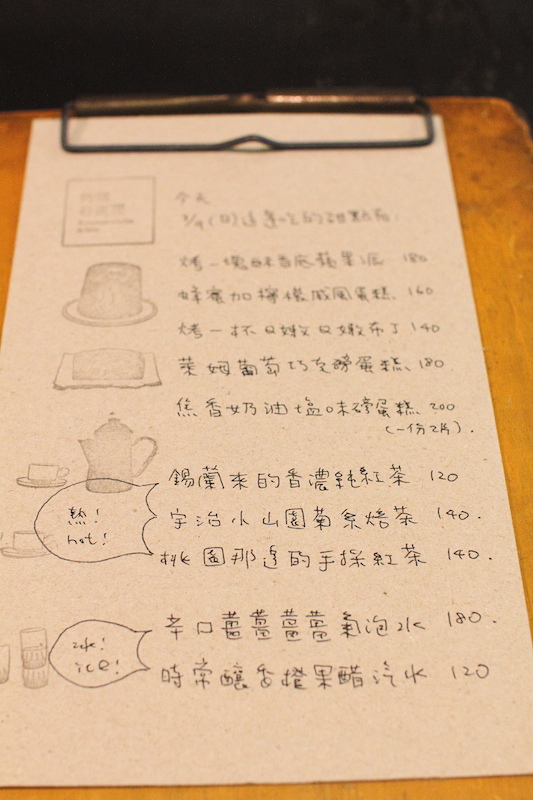 今天
3/9(日)這享吃的甜點有:
烤一塊酥香底蘋果派 180
蜂蜜加檸檬戚風蛋糕、160
烤一杯又嫩又嫩布丁 140
萊姆葡萄巧克磅蛋糕、180
焦香奶油塩味磅蛋糕、200
(一份2片).
錫蘭來的香濃純紅茶 120
熱!
hot!
宇治小山園菊系焙茶 140.
桃園那邊的手採紅茶 140.
冰!
ice!
辛口薑薑薑薑氣泡水 180.
時常釀香橙果醋汽水 120